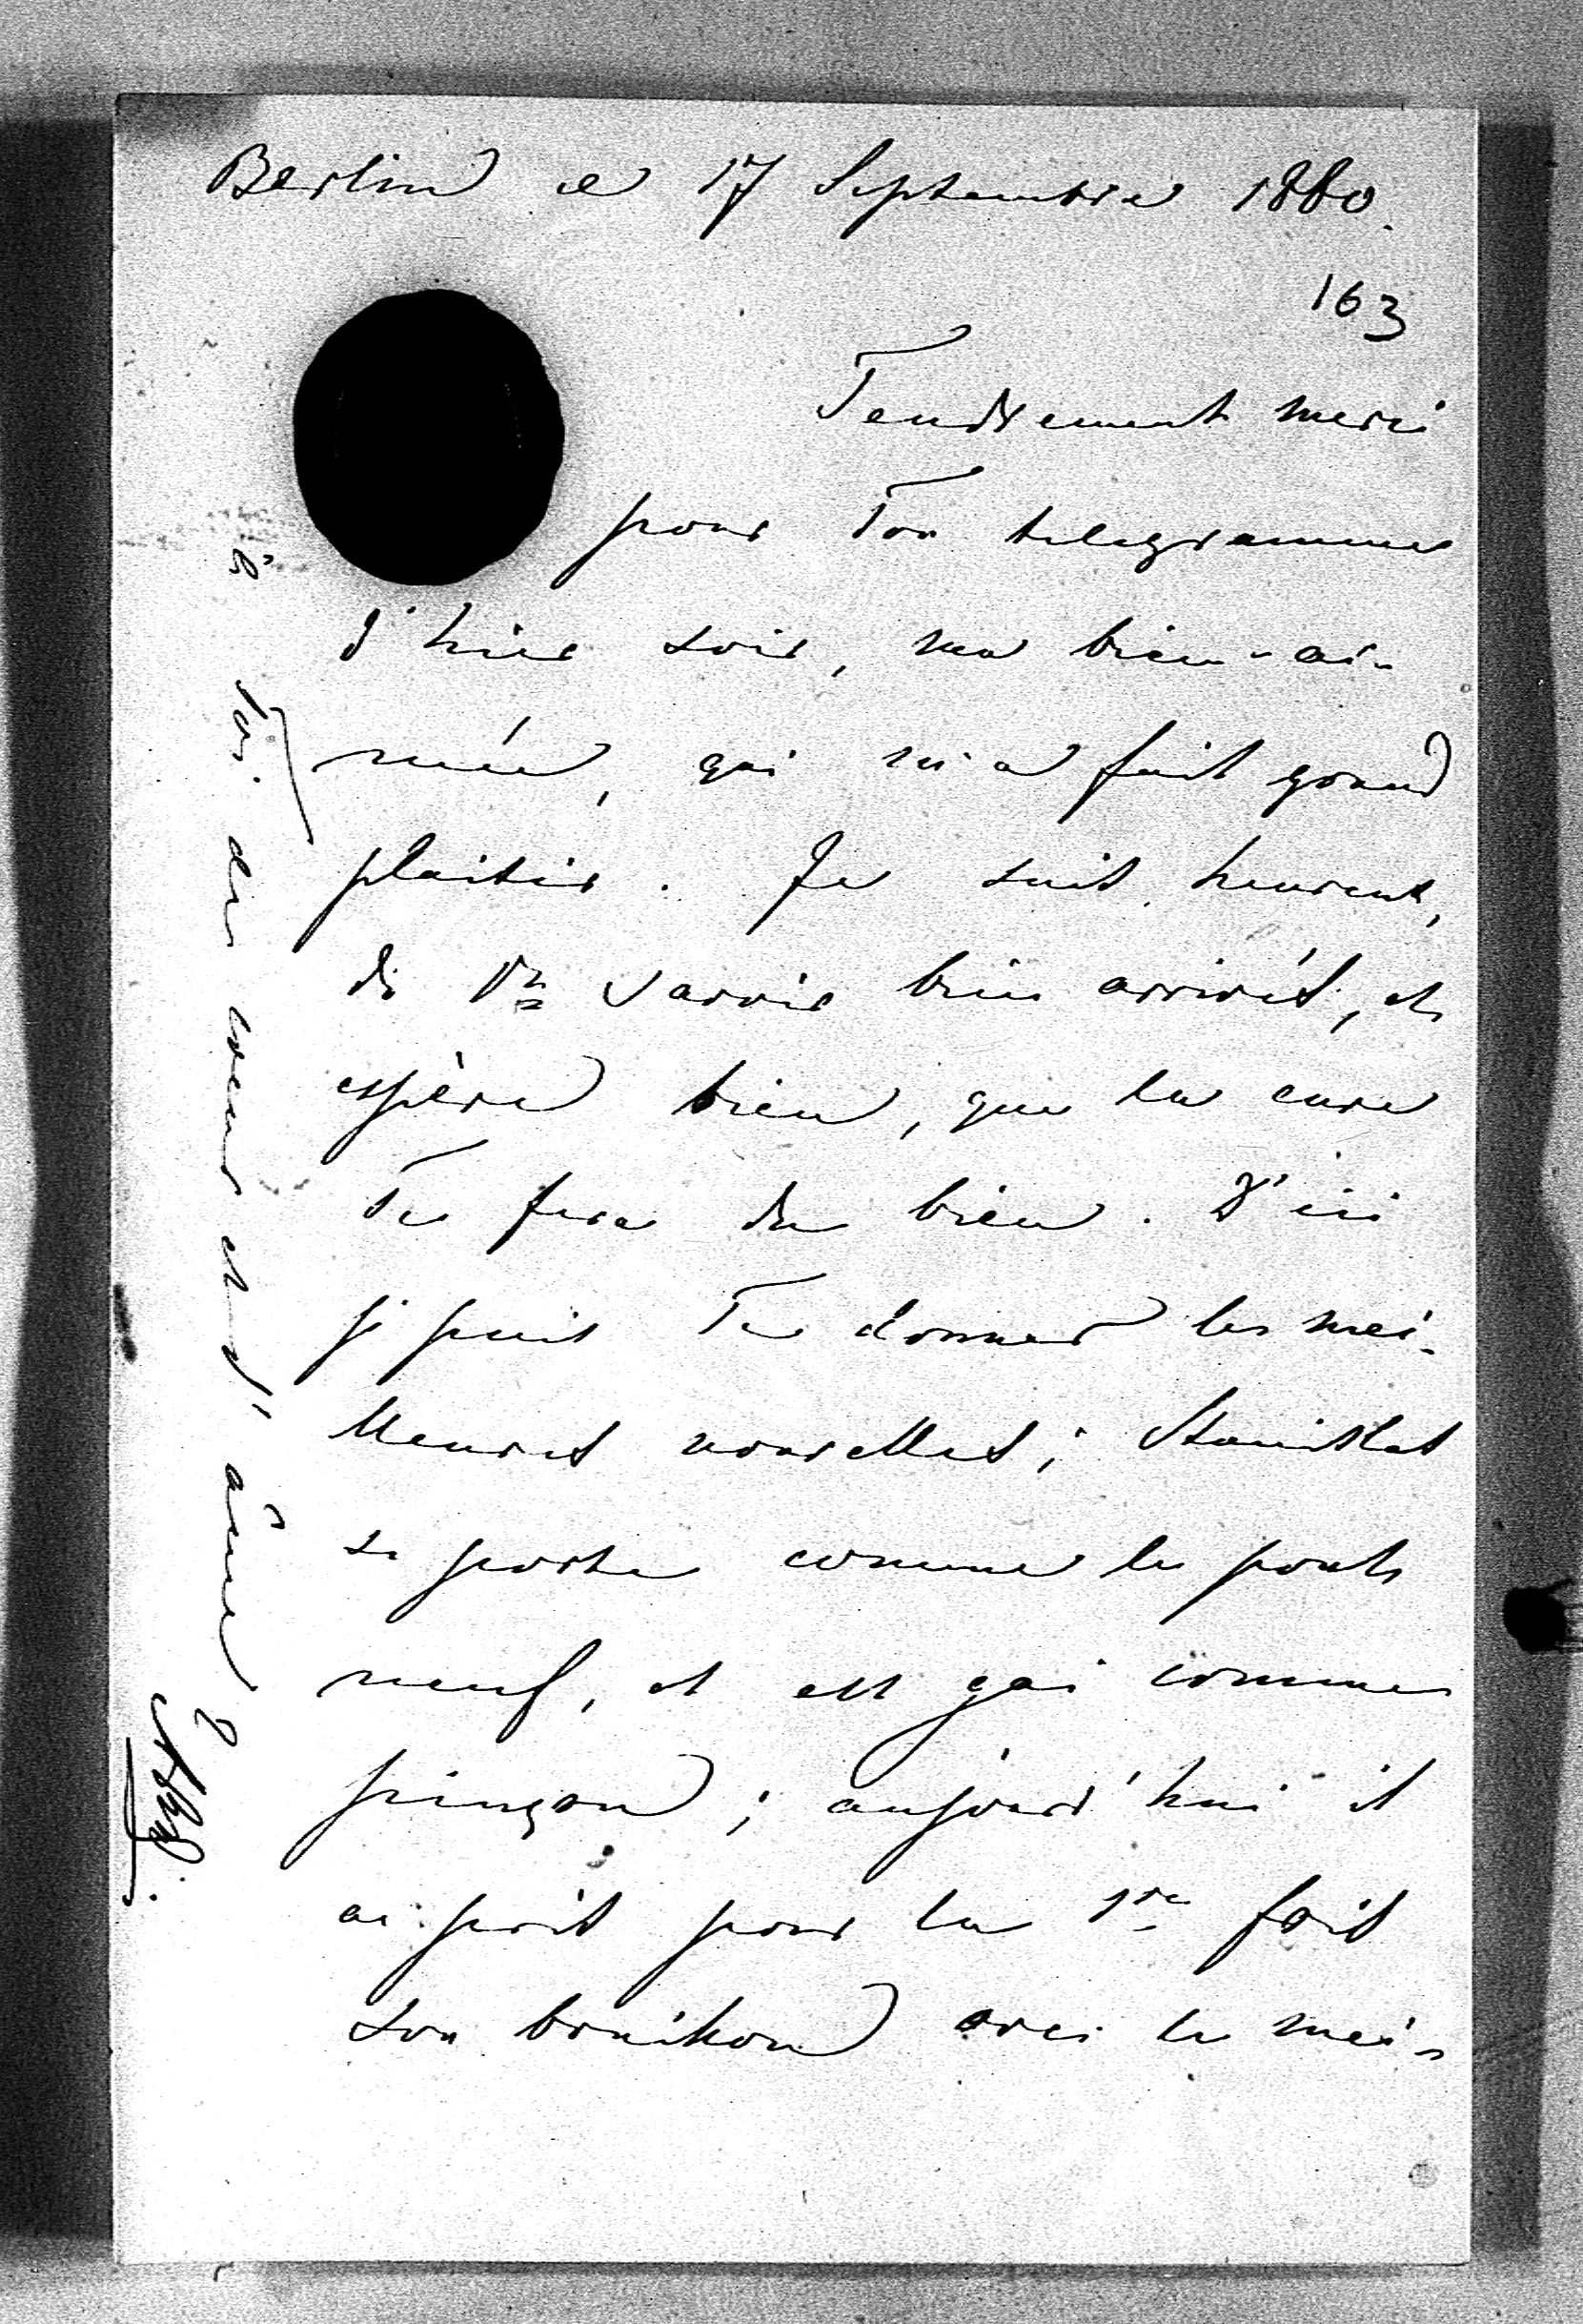 Berlin ce 17 Septembre 1880.
163
Tendrement merci
pour Ton telegramme
d'hier soir, ma bien-ai-
mée, qui m'a fait grand
plaisir. Je suis heureux,
de Vs savoir bien arrivés, et
espère bien, que la cure
Te fera du bien. D'ici
je puis Te donner les mei-
lleures nouvelles; Stanislas
se porte comme le pont
neuf, et est gai comme
pinçon; aujourd'hui il
a pris pour la 1re fois
son bouillon avec le mei-
à Toi de coeur et d'âme